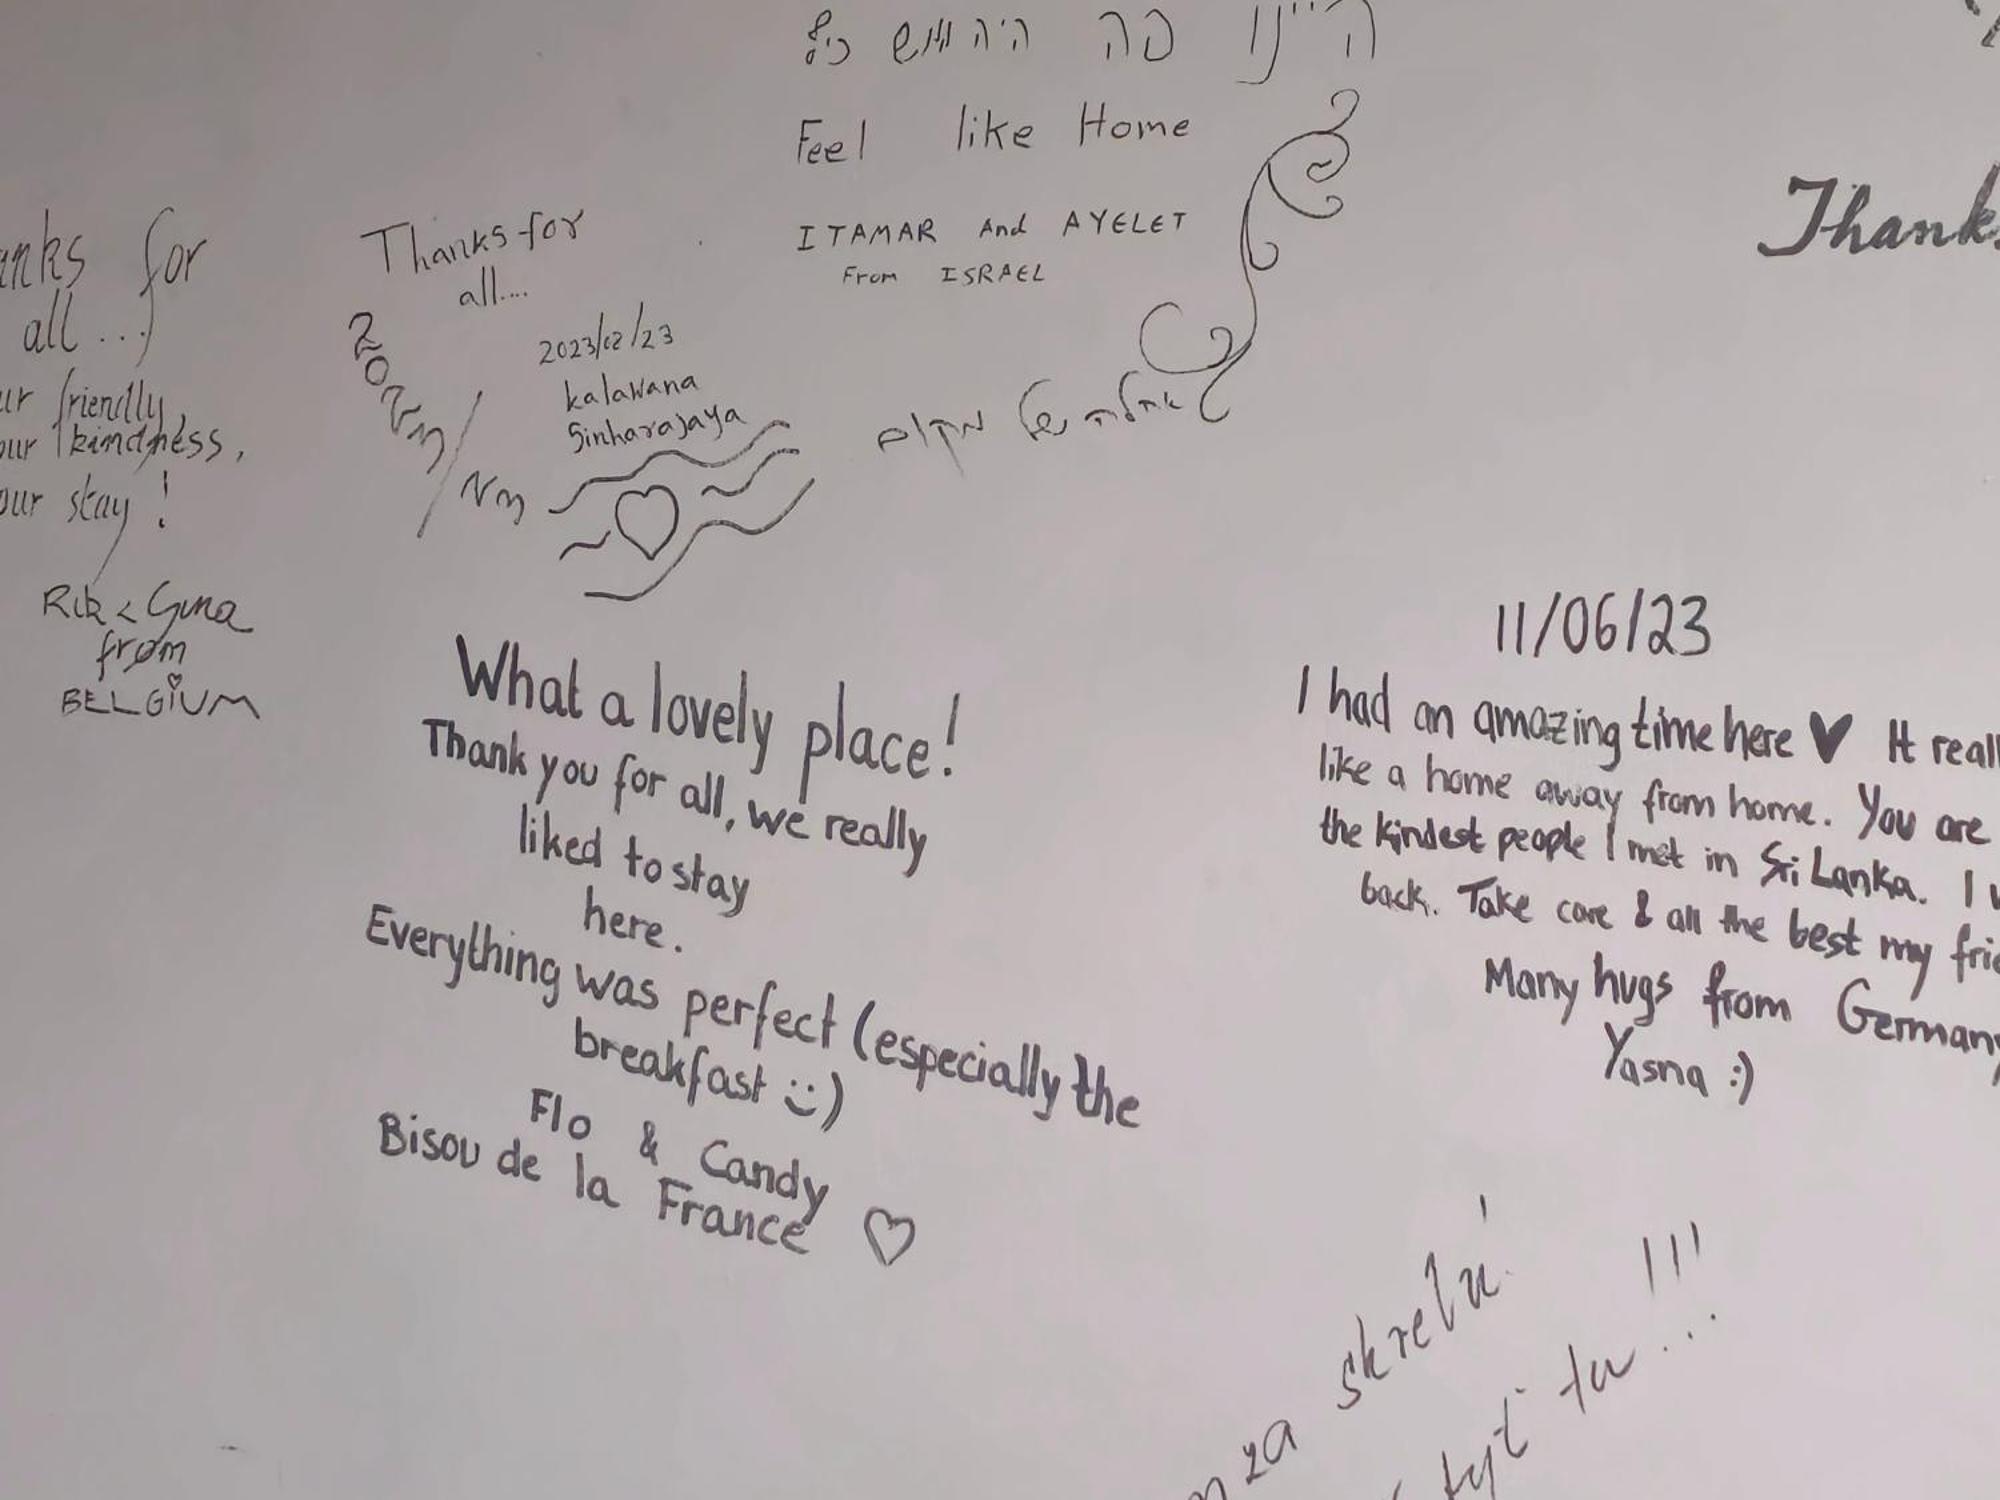 היינו פה היה ממש כיף
Feel like Home
ITAMAR And AYELET
From ISRAEL
אחלה של מקום
anks for
all...
ur friendly,
our kindness,
our stay!
Rik & Gina
from
BELGIUM
Thanks for
all....
2023/02/23
kalawana
Sinharajaya
What a lovely place!
Thank you for all, we really
liked to stay
here.
Everything was perfect (especially the
breakfast :))
Flo & Candy
Bisou de la France ♡
Thanks
11/06/23
I had an amazing time here ♥ It reall
like a home away from home. You are
the kindest people I met in Sri Lanka. I w
back. Take care & all the best my frie
Many hugs from Germany
Yasna :)
za
tu...!!!